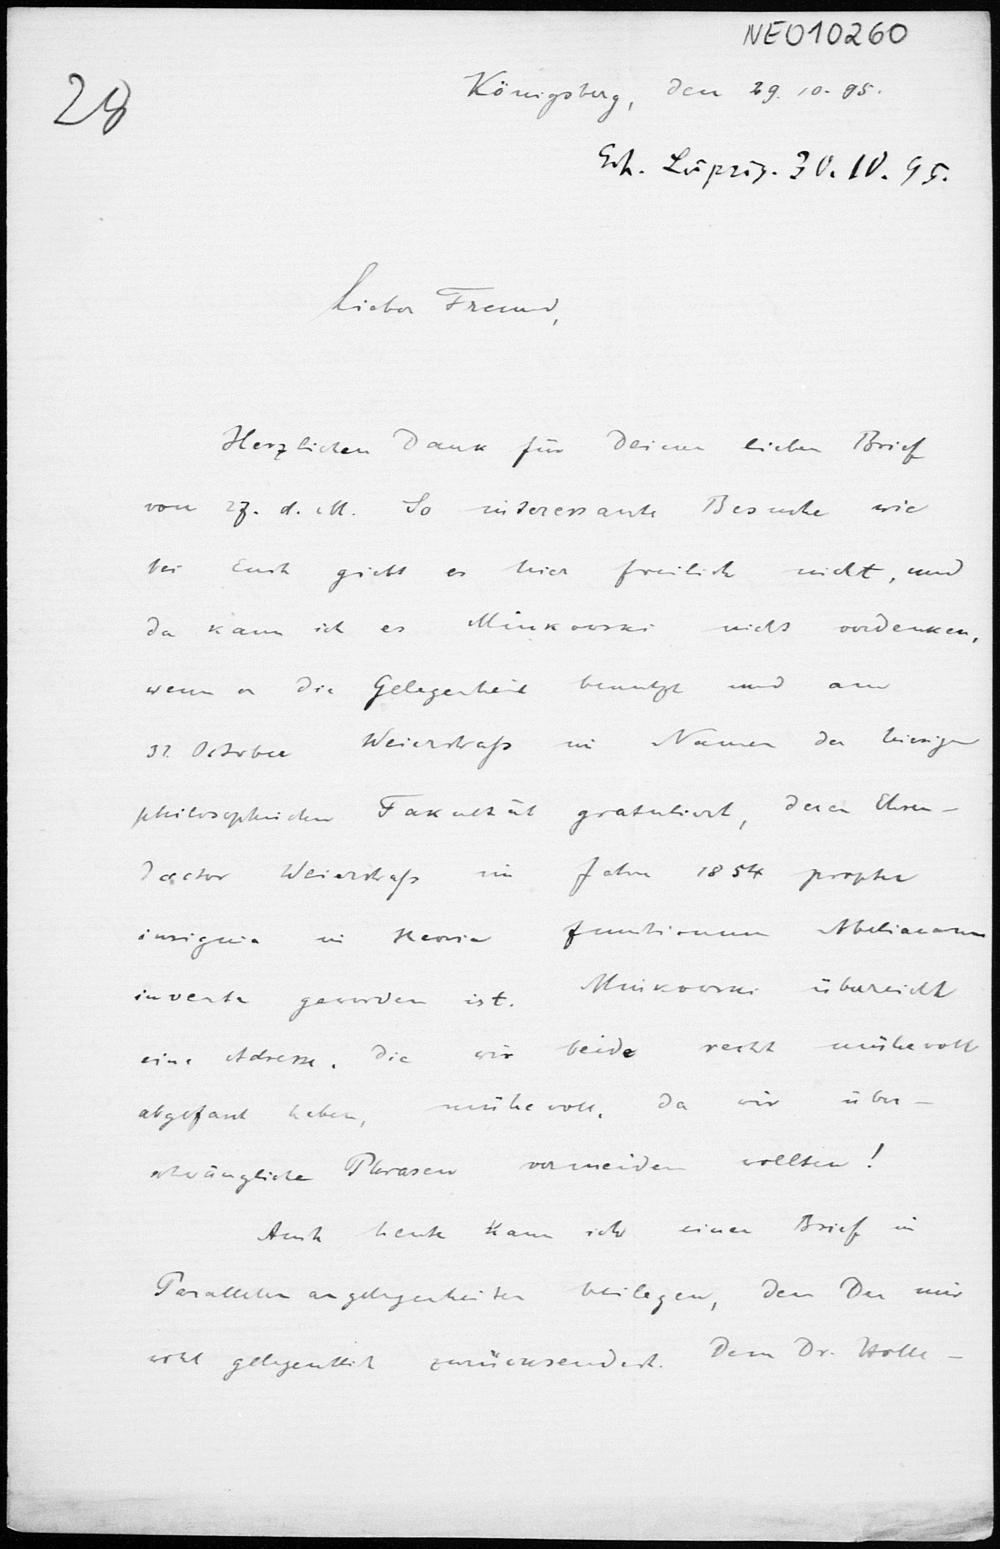 NEO10260
28
Königsberg, den 29. 10. 95.
Erh. Leipzig. 30. 10. 95.
Lieber Freund,
Herzlichen Dank für Deinen lieben Brief
vom 27. d. M. So interessante Besuche wie
bei Euch giebt es hier freilich nicht, und
da kann ich es Minkowski nicht verdenken,
wenn er die Gelegenheit benutzt und am
31. October Weierstraß im Namen der hiesigen
philosophischen Fakultät gratuliert, deren Ehren-
doctor Weierstraß im Jahre 1854 propter
insignia in theoria functionum Abelianarum
inventa geworden ist. Minkowski überreicht
eine Adresse, die wir beide recht mühevoll
abgefasst haben, mühevoll, da wir über-
schwängliche Phrasen vermeiden wollten!
Auch heute kann ich einen Brief in
Parallelenangelegenheiten beilegen, den Du mir
wohl gelegentlich zurücksendest. Dem Dr. Holle-